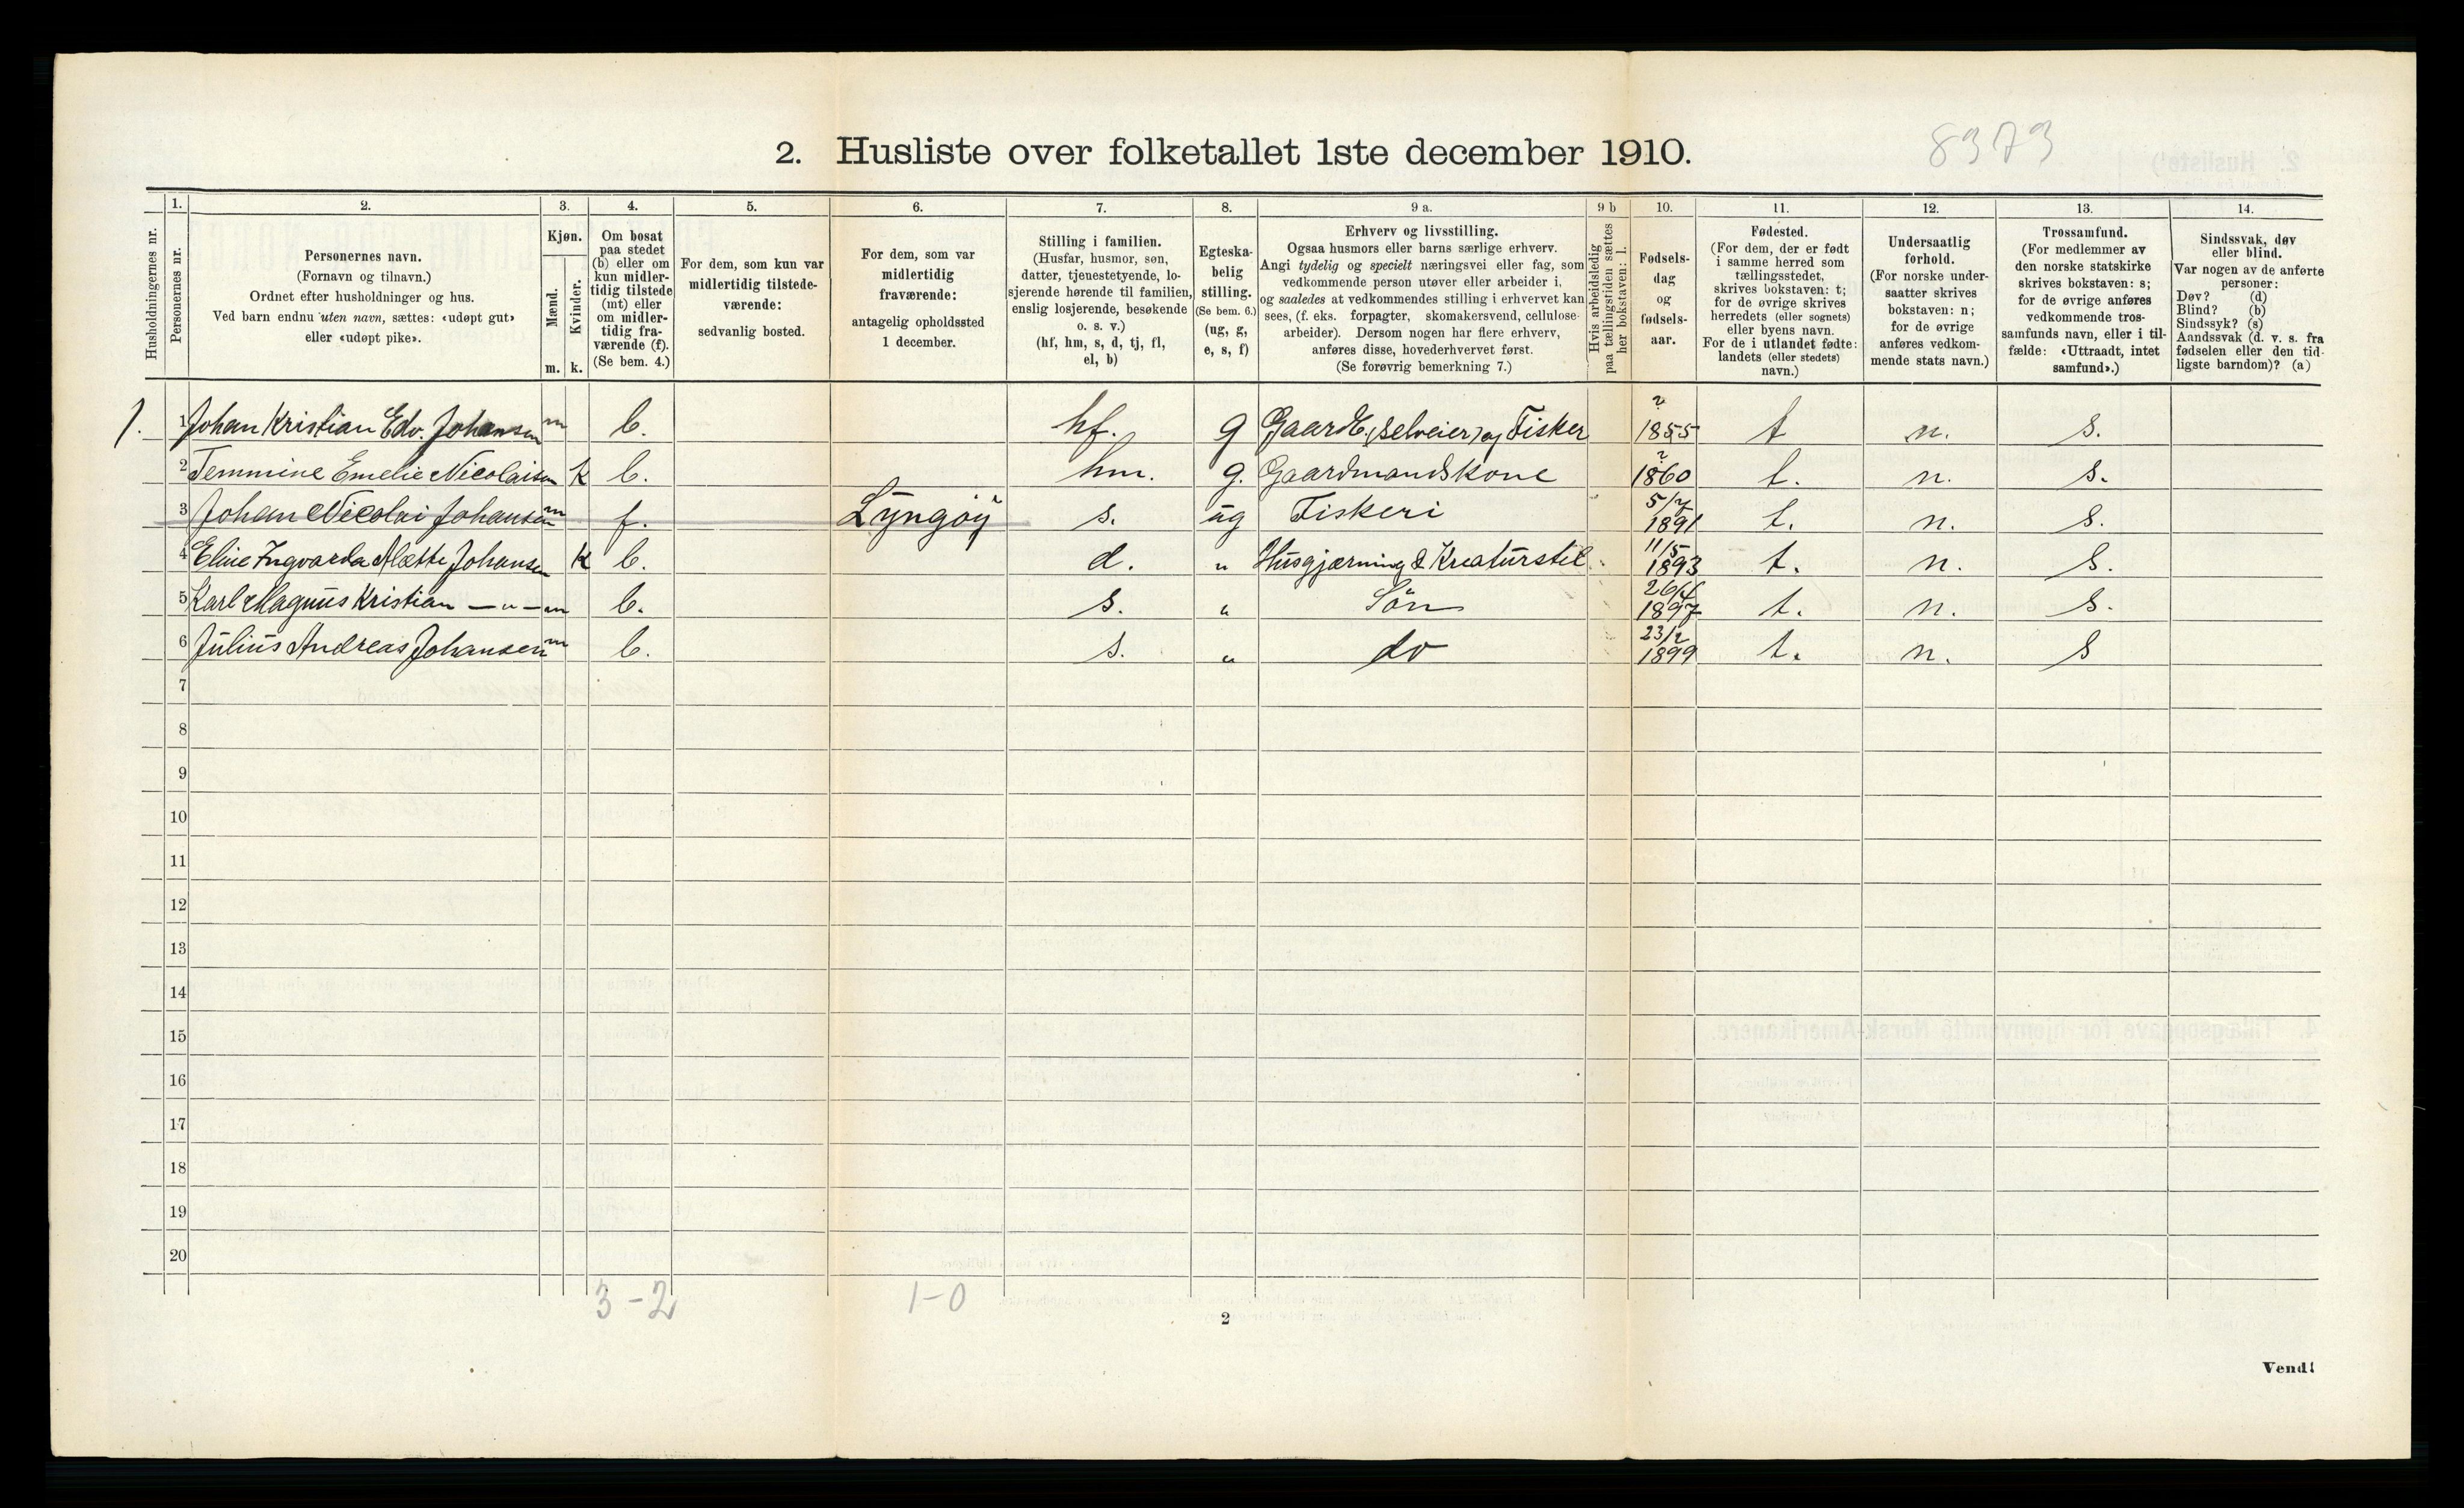 8373
2. Husliste over folketallet 1ste december 1910.
1. 2. 3. 4. 5. 6. 7. 8. 9 a. 9 b 10. 11. 12. 13. 14.
Husholdningernes nr.
Personernes nr.
Personernes navn.
(Fornavn og tilnavn.)
Ordnet efter husholdninger og hus.
Ved barn endnu uten navn, sættes: «udøpt gut»
eller «udøpt pike».
Kjøn.
Mænd.
Kvinder.
m. k.
Om bosat
paa stedet
(b) eller om
kun midler-
tidig tilstede
(mt) eller
om midler-
tidig fra-
værende (f).
(Se bem. 4.)
For dem, som kun var
midlertidig tilstede-
værende:
sedvanlig bosted.
For dem, som var
midlertidig
fraværende:
antagelig opholdssted
1 december.
Stilling i familien.
(Husfar, husmor, søn,
datter, tjenestetyende, lo-
sjerende hørende til familien,
enslig losjerende, besøkende
o. s. v.)
(hf, hm, s, d, tj, fl,
el, b)
Egteska-
belig
stilling.
(Se bem. 6.)
(ug, g,
e, s, f)
Erhverv og livsstilling.
Ogsaa husmors eller barns særlige erhverv.
Angi tydelig og specielt næringsvei eller fag, som
vedkommende person utøver eller arbeider i,
og saaledes at vedkommendes stilling i erhvervet kan
sees, (f. eks. forpagter, skomakersvend, cellulose-
arbeider). Dersom nogen har flere erhverv,
anføres disse, hovederhvervet først.
(Se forøvrig bemerkning 7.)
Hvis arbeidsledig
paa tællingstiden sættes
her bokstaven: l.
Fødsels-
dag
og
fødsels-
aar.
Fødested.
(For dem, der er født
i samme herred som
tællingsstedet,
skrives bokstaven: t;
for de øvrige skrives
herredets (eller sognets)
eller byens navn.
For de i utlandet fødte:
landets (eller stedets)
navn.)
Undersaatlig
forhold.
(For norske under-
saatter skrives
bokstaven: n;
for de øvrige
anføres vedkom-
mende stats navn.)
Trossamfund.
(For medlemmer av
den norske statskirke
skrives bokstaven: s;
for de øvrige anføres
vedkommende tros-
samfunds navn, eller i til-
fælde: «Uttraadt, intet
samfund».)
Sindssvak, døv
eller blind.
Var nogen av de anførte
personer:
Døv? (d)
Blind? (b)
Sindssyk? (s)
Aandssvak (d. v. s. fra
fødselen eller den tid-
ligste barndom)? (a)
1. 1 Johan Kristian Edv. Johansen m b. hf. g Gaardb. (selveier) og Fisker ? 1855 t n. s.
2 Temmine Emelie Nicolaisen k b. hm. g. Gaardmandskone ? 1860 t. n. s.
3 Johan Nicolai Johansen m f. Lyngöy s. ug Fiskeri 5/7 1891 t. n. s.
4 Eline Ingvarda Alette Johansen k b. d. " Husgjærning & Kreaturstel 11/5 1893 t. n. s.
5 Karl Magnus Kristian — " — m b. s. " Sön 1897 t. n. s.
6 Julius Andreas Johansen m b. s. " do 23/2 1899 t. n. s
7
8
9
10
11
12
13
14
15
16
17
18
19
20
3 - 2 1 - 0
2
Vend!